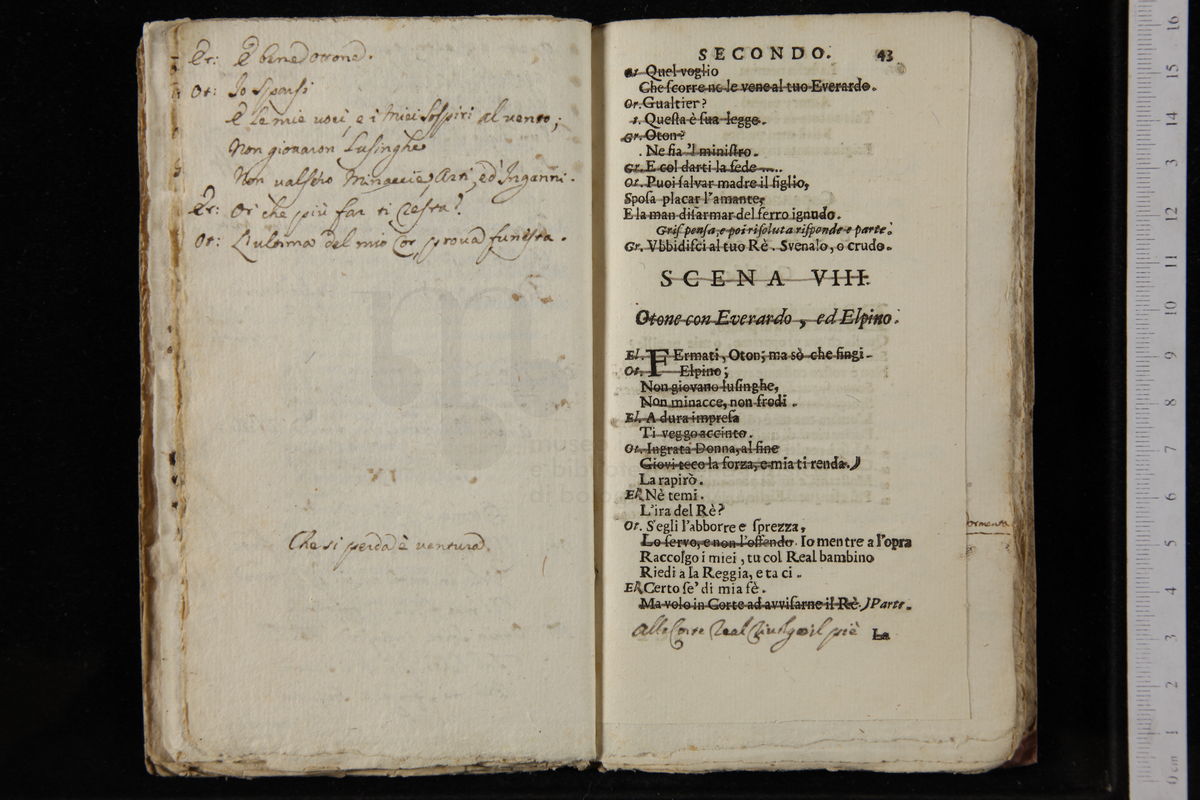 Er: E bene Ottone.
Ot: Io sparsi
E le mie voci, e i miei sospiri al vento;
Non giovaron lusinghe
Non valsero Minaccie, Arti, ed Inganni.
Er: Or che più far ti resta?
Ot: L'ultima del mio Cor prova funesta.
Che si perda è ventura.
SECONDO. 43
Ot. Quel voglio
Che ſcorre ne le vene al tuo Everardo.
Gr. Gualtier?
Queſta è ſua legge.
Gr. Oton?
Ne fia 'l miniſtro.
Gr. E col darti la fede .....
Ot. Puoi ſalvar madre il figlio,
Spoſa placar l'amante,
E la man diſarmar del ferro ignudo.
Griſ. penſa, e poi riſoluta riſponde e parte.
Gr. Vbbidiſci al tuo Rè. Svenalo, o crudo.
SCENA VIII.
Otone con Everardo, ed Elpino.
El. FErmati, Oton; ma sò che fingi.
Ot. Elpino;
Non giovano luſinghe,
Non minacce, non frodi.
El. A dura impreſa
Ti veggo accinto.
Ot. Ingrata Donna, al fine
Giovi teco la forza, e mia ti renda.)
La rapirò.
El. Nè temi.
L'ira del Rè?
Ot. S'egli l'abborre e ſprezza,
Lo ſervo, e non l'offendo. Io mentre a l'opra
Raccolgo i miei, tu col Real bambino
Riedi a la Reggia, e taci.
El. Certo ſe' di mia fè.
Ma volo in Corte ad avviſarne il Rè.) Parte.
alla Corte Real rivolgo il piè
La
tormenta